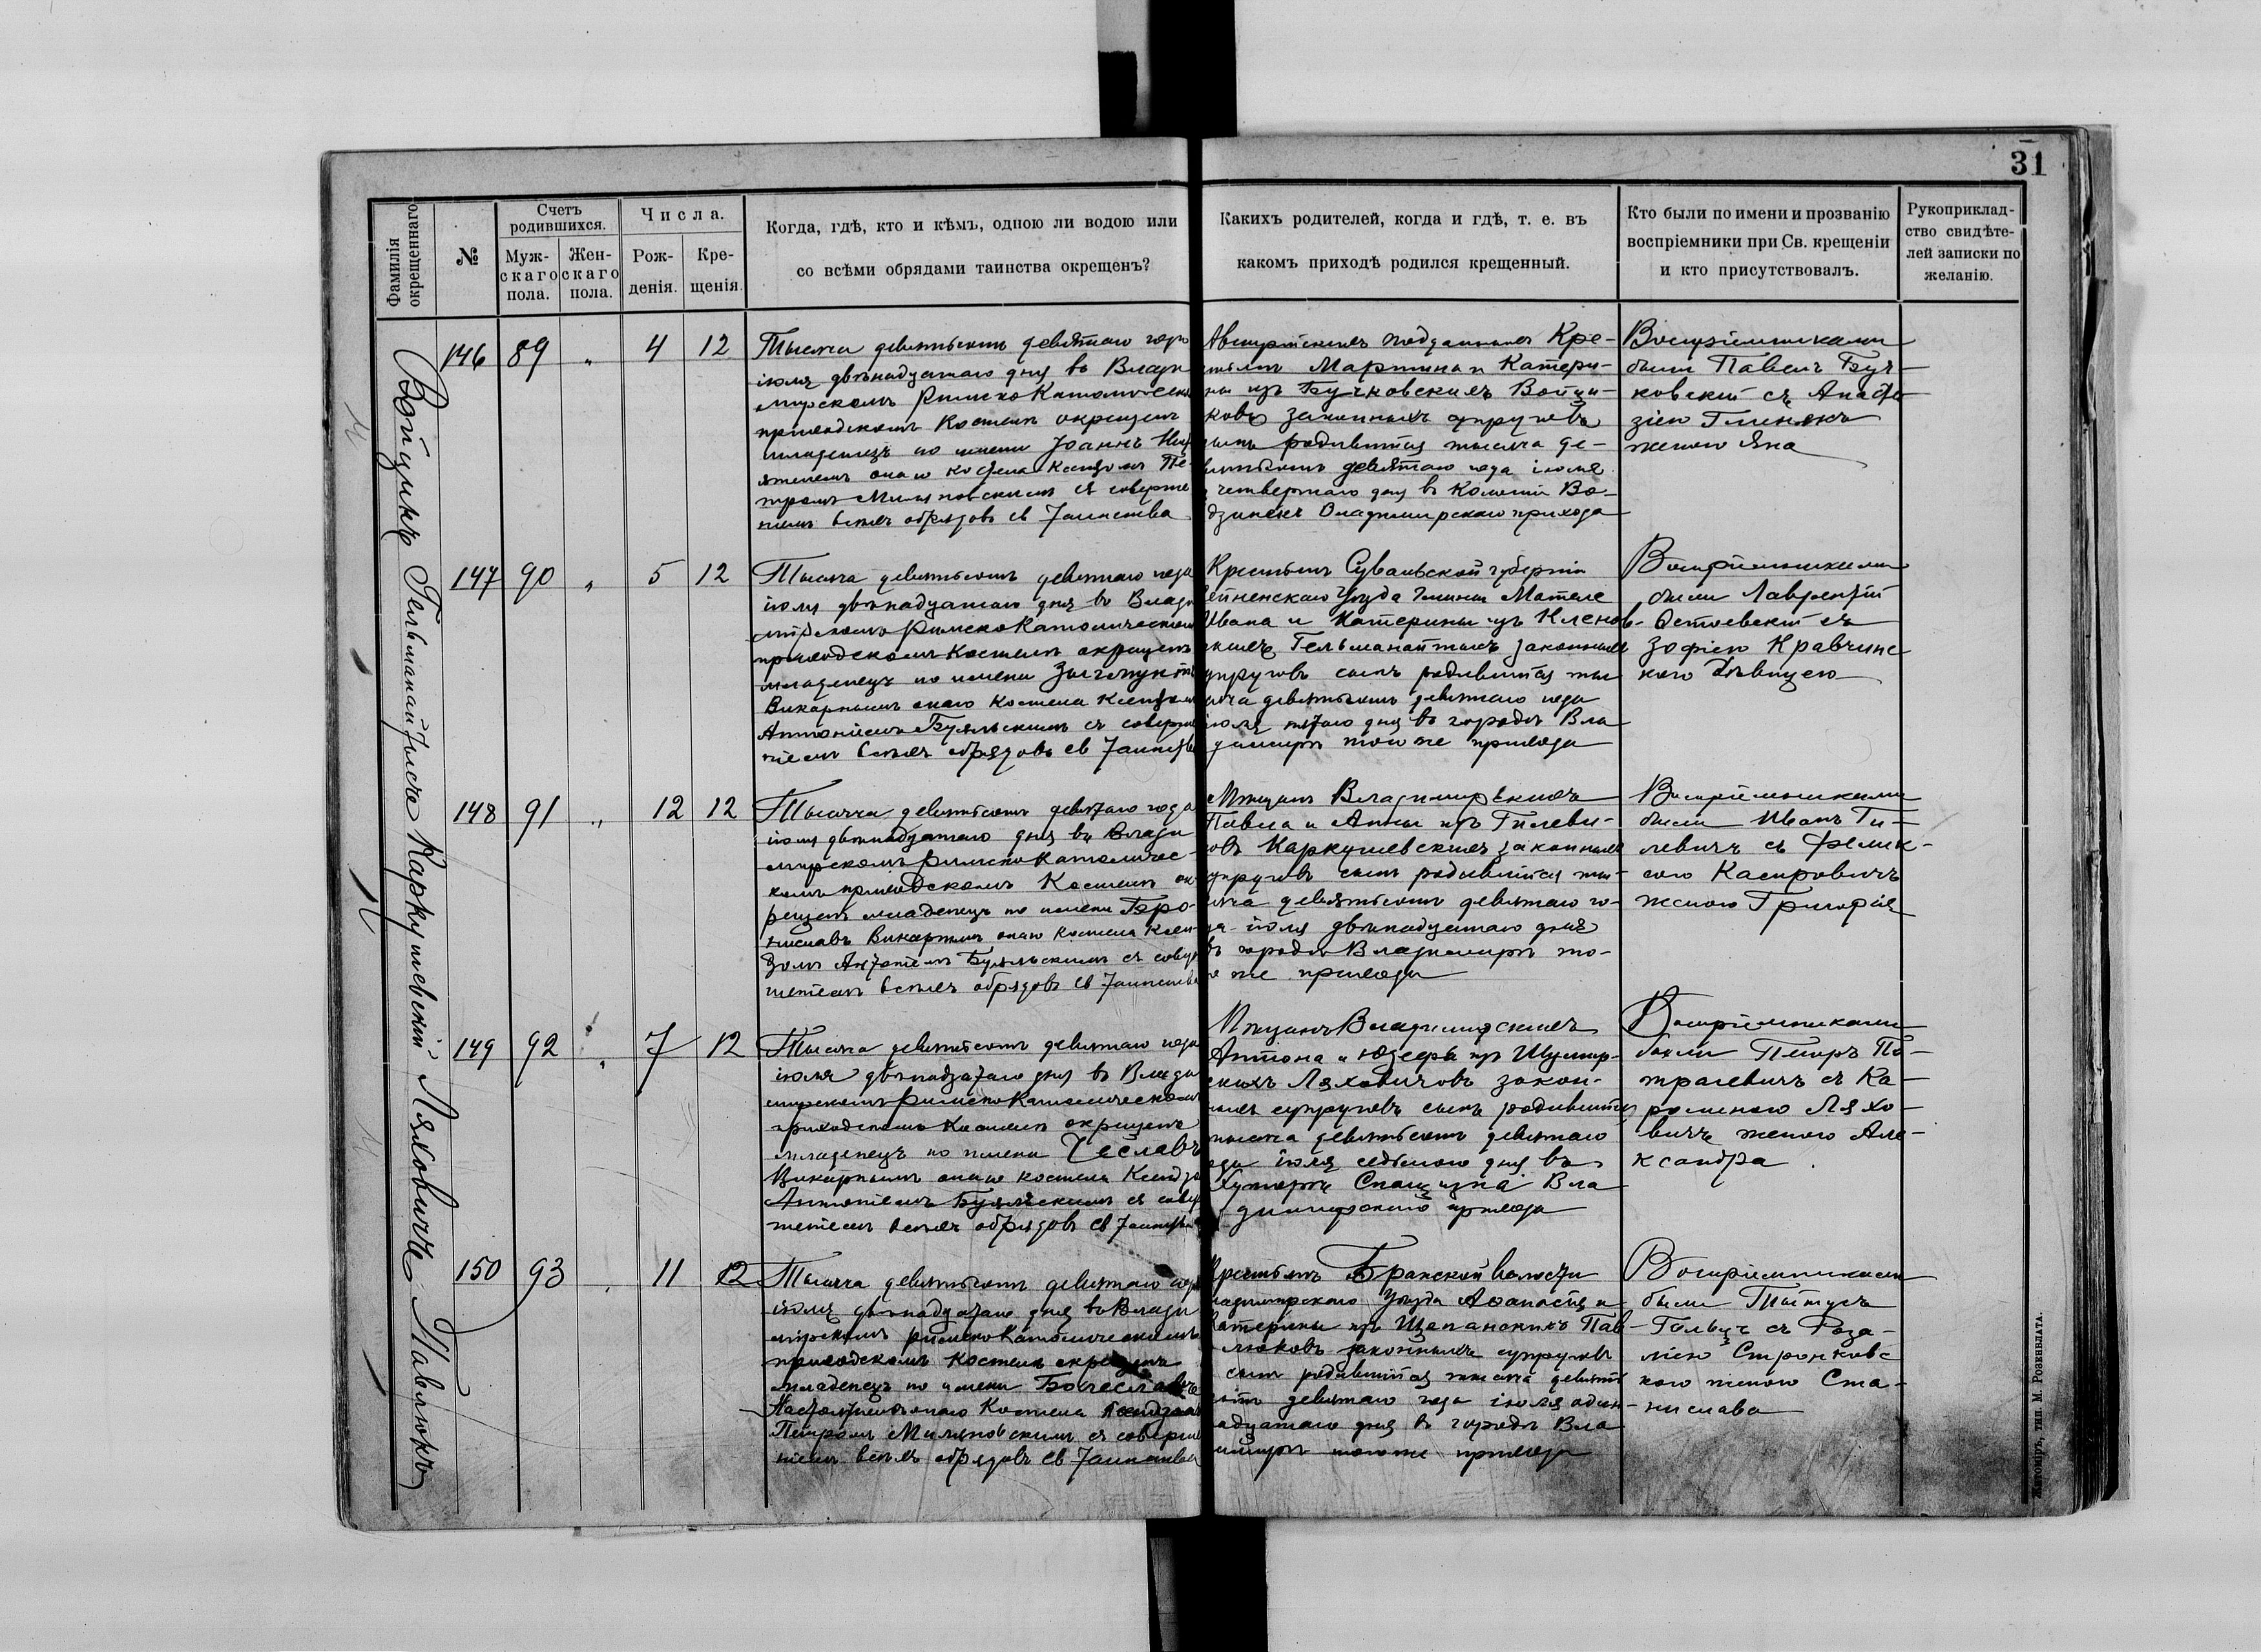 31
Фамилія окрещеннаго
№
Счетъ родившихся.
Муж-скаго пола.
Жен-скаго пола.
Числа.
Рож-денія.
Кре-щенія.
Когда, гдѣ, кто и кѣмъ, одною ли водою или
со всѣми обрядами таинства окрещенъ?
Какихъ родителей, когда и гдѣ, т. е. въ
какомъ приходѣ родился крещенный.
Кто были по имени и прозванію
воспріемники при Св. крещеніи
и кто присутствовалъ.
Рукоприклад-
ство свидѣте-
лей записки по
желанію.
Войцикъ
146 89 " 4 12
Тысяча девятьсотъ девятаго года
іюля двѣнадцатаго дня въ Влади
мирскомъ Римско Католическ
приходскомъ Костелѣ окрещенъ
младенецъ по имени Іоаннъ Нас
ятелемъ онаго костела Ксендзомъ Пе-
тромъ Миляновскимъ съ соверше
ніемъ всѣхъ обрядовъ св Таинства
Австрійскихъ подданныхъ Кре-
стьянъ Мартина и Катери-
ны изъ Бучковскихъ Войци-
ковъ законныхъ супруговъ
сынъ родившійся тысяча де-
вятьсотъ девятаго года іюля
четвертаго дня въ Колоніи Во-
дзинекъ Владимирскаго прихода
Воспріемниками
были Павелъ Буч-
ковскій съ Анаста
зіею Глинякъ
женою Яна
Гельманайтисъ
147 90 " 5 12
Тысяча девятьсотъ девятаго года
іюля двѣнадцатаго дня въ Влади
мірскомъ Римско Католическомъ
приходскомъ Костелѣ окрещенъ
младенецъ по имени Зыгмунтъ
Викарнымъ онаго костела Ксендзомъ
Антоніемъ Буяльскимъ съ соверше
ніемъ всѣхъ обрядовъ св Таинства
Крестьянъ Сувалкской губерніи
ейненскаго Уѣзда Гмины Мателе
Ивана и Катерины изъ Кленов-
скихъ Гельманайтисъ законныхъ
супруговъ сынъ родившійся ты
сяча девятьсотъ девятаго года
іюля пятаго дня въ городѣ Вла
димирѣ того же прихода
Воспріемниками
были Лаврентій
Остоевскій съ
Зофіею Кравчинс
кою Дѣвицею
Каркушевскій
148 91 " 12 12
Тысяча девятьсотъ девятаго года
іюля двѣнадцатаго дня въ Влади
мирскомъ Римско Католичес-
комъ приходскомъ Костелѣ ок
рещенъ младенецъ по имени Бро-
ниславъ Викарнымъ онаго костела Ксен
дзомъ Антоніемъ Буяльскимъ съ совер
шеніемъ всѣхъ обрядовъ св Таинства
Мѣщанъ Владимирскихъ
Павла и Анны изъ Гилеви-
човъ Каркушевскихъ законныхъ
супруговъ сынъ родившійся ты-
сяча девятьсотъ девятаго го-
да іюля двѣнадцатаго дня
въ городѣ Владимирѣ то-
го же прихода
Воспріемниками
были Иванъ Ги-
левичъ съ Фелик-
сою Каспровичъ
женою Григорія
Ляховичъ
149 92 " 7 12
Тысяча девятьсотъ девятаго года
іюля двѣнадцатаго дня въ Влади
мирскомъ Римско Католическомъ
приходскомъ Костелѣ окрещенъ
младенецъ по имени Чеславъ
Викарнымъ онаго костела Ксендзо
Антоніемъ Буяльскимъ съ совер
шеніемъ всѣхъ обрядовъ св Таинства
Мѣщанъ Владимирскихъ
Антона и Юзефы изъ Шумир-
скихъ Ляховичовъ закон-
ныхъ супруговъ сынъ родившійся
тысяча девятьсотъ девятаго
года іюля седьмого дня въ
Хуторѣ Спащизна Вла
димирскаго прихода
Воспріемниками
были Петръ Пе-
тралевичъ съ Ка-
ролиною Ляхо-
вичъ женою Але-
ксандра.
Павлюкъ
150 93 " 11 12
Тысяча девятьсотъ девятаго года
іюля двѣнадцатаго дня въ Влади
мірскомъ римско Католическомъ
приходскомъ Костелѣ окрещенъ
младенецъ по имени Болеславъ
Настоятелемъ онаго Костела Ксендзомъ
Петромъ Миляновскимъ съ соверше
ніемъ всѣхъ обрядовъ св Таинства
Крестьянъ Бранской волости
ладимірскаго Уѣзда Афанасія и
Катерины изъ Щепанскихъ Пав
люковъ законныхъ супруговъ
сынъ родившійся тысяча девять
сотъ девятаго года іюля один-
надцатаго дня въ городѣ Вла
димирѣ того же прихода
Воспріемниками
были Тытусъ
Гольцъ съ Роза-
ліею Стронковс
кою женою Ста-
нислава
Житоміръ, тип. М. Розенблата.